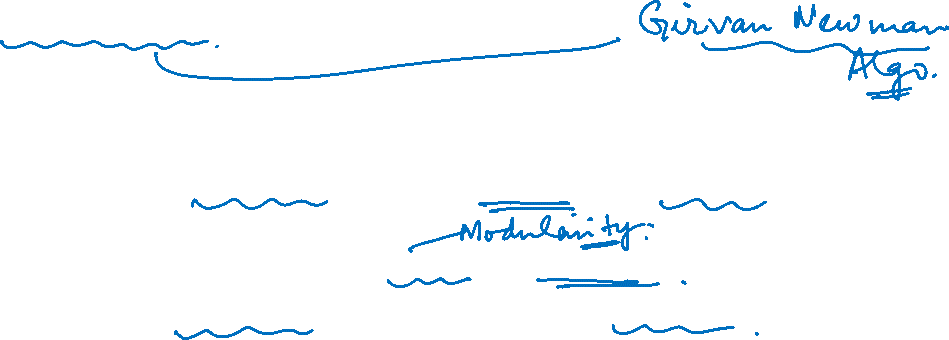 Girvan Newman
Algo.
Modularity: